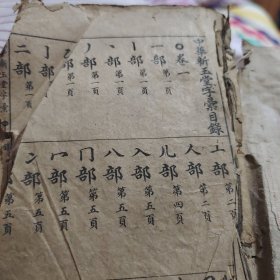 中華新玉堂字彙目錄
○卷一
一部 第一頁
丨部 第一頁
丶部 第一頁
丿部 第一頁
部 第一頁
亅部 第一頁
二部 第二頁
亠部 第二頁
人部 第二頁
儿部 第四頁
入部 第五頁
八部 第五頁
冂部 第五頁
冖部 第五頁
冫部 第五頁
玉堂字彙